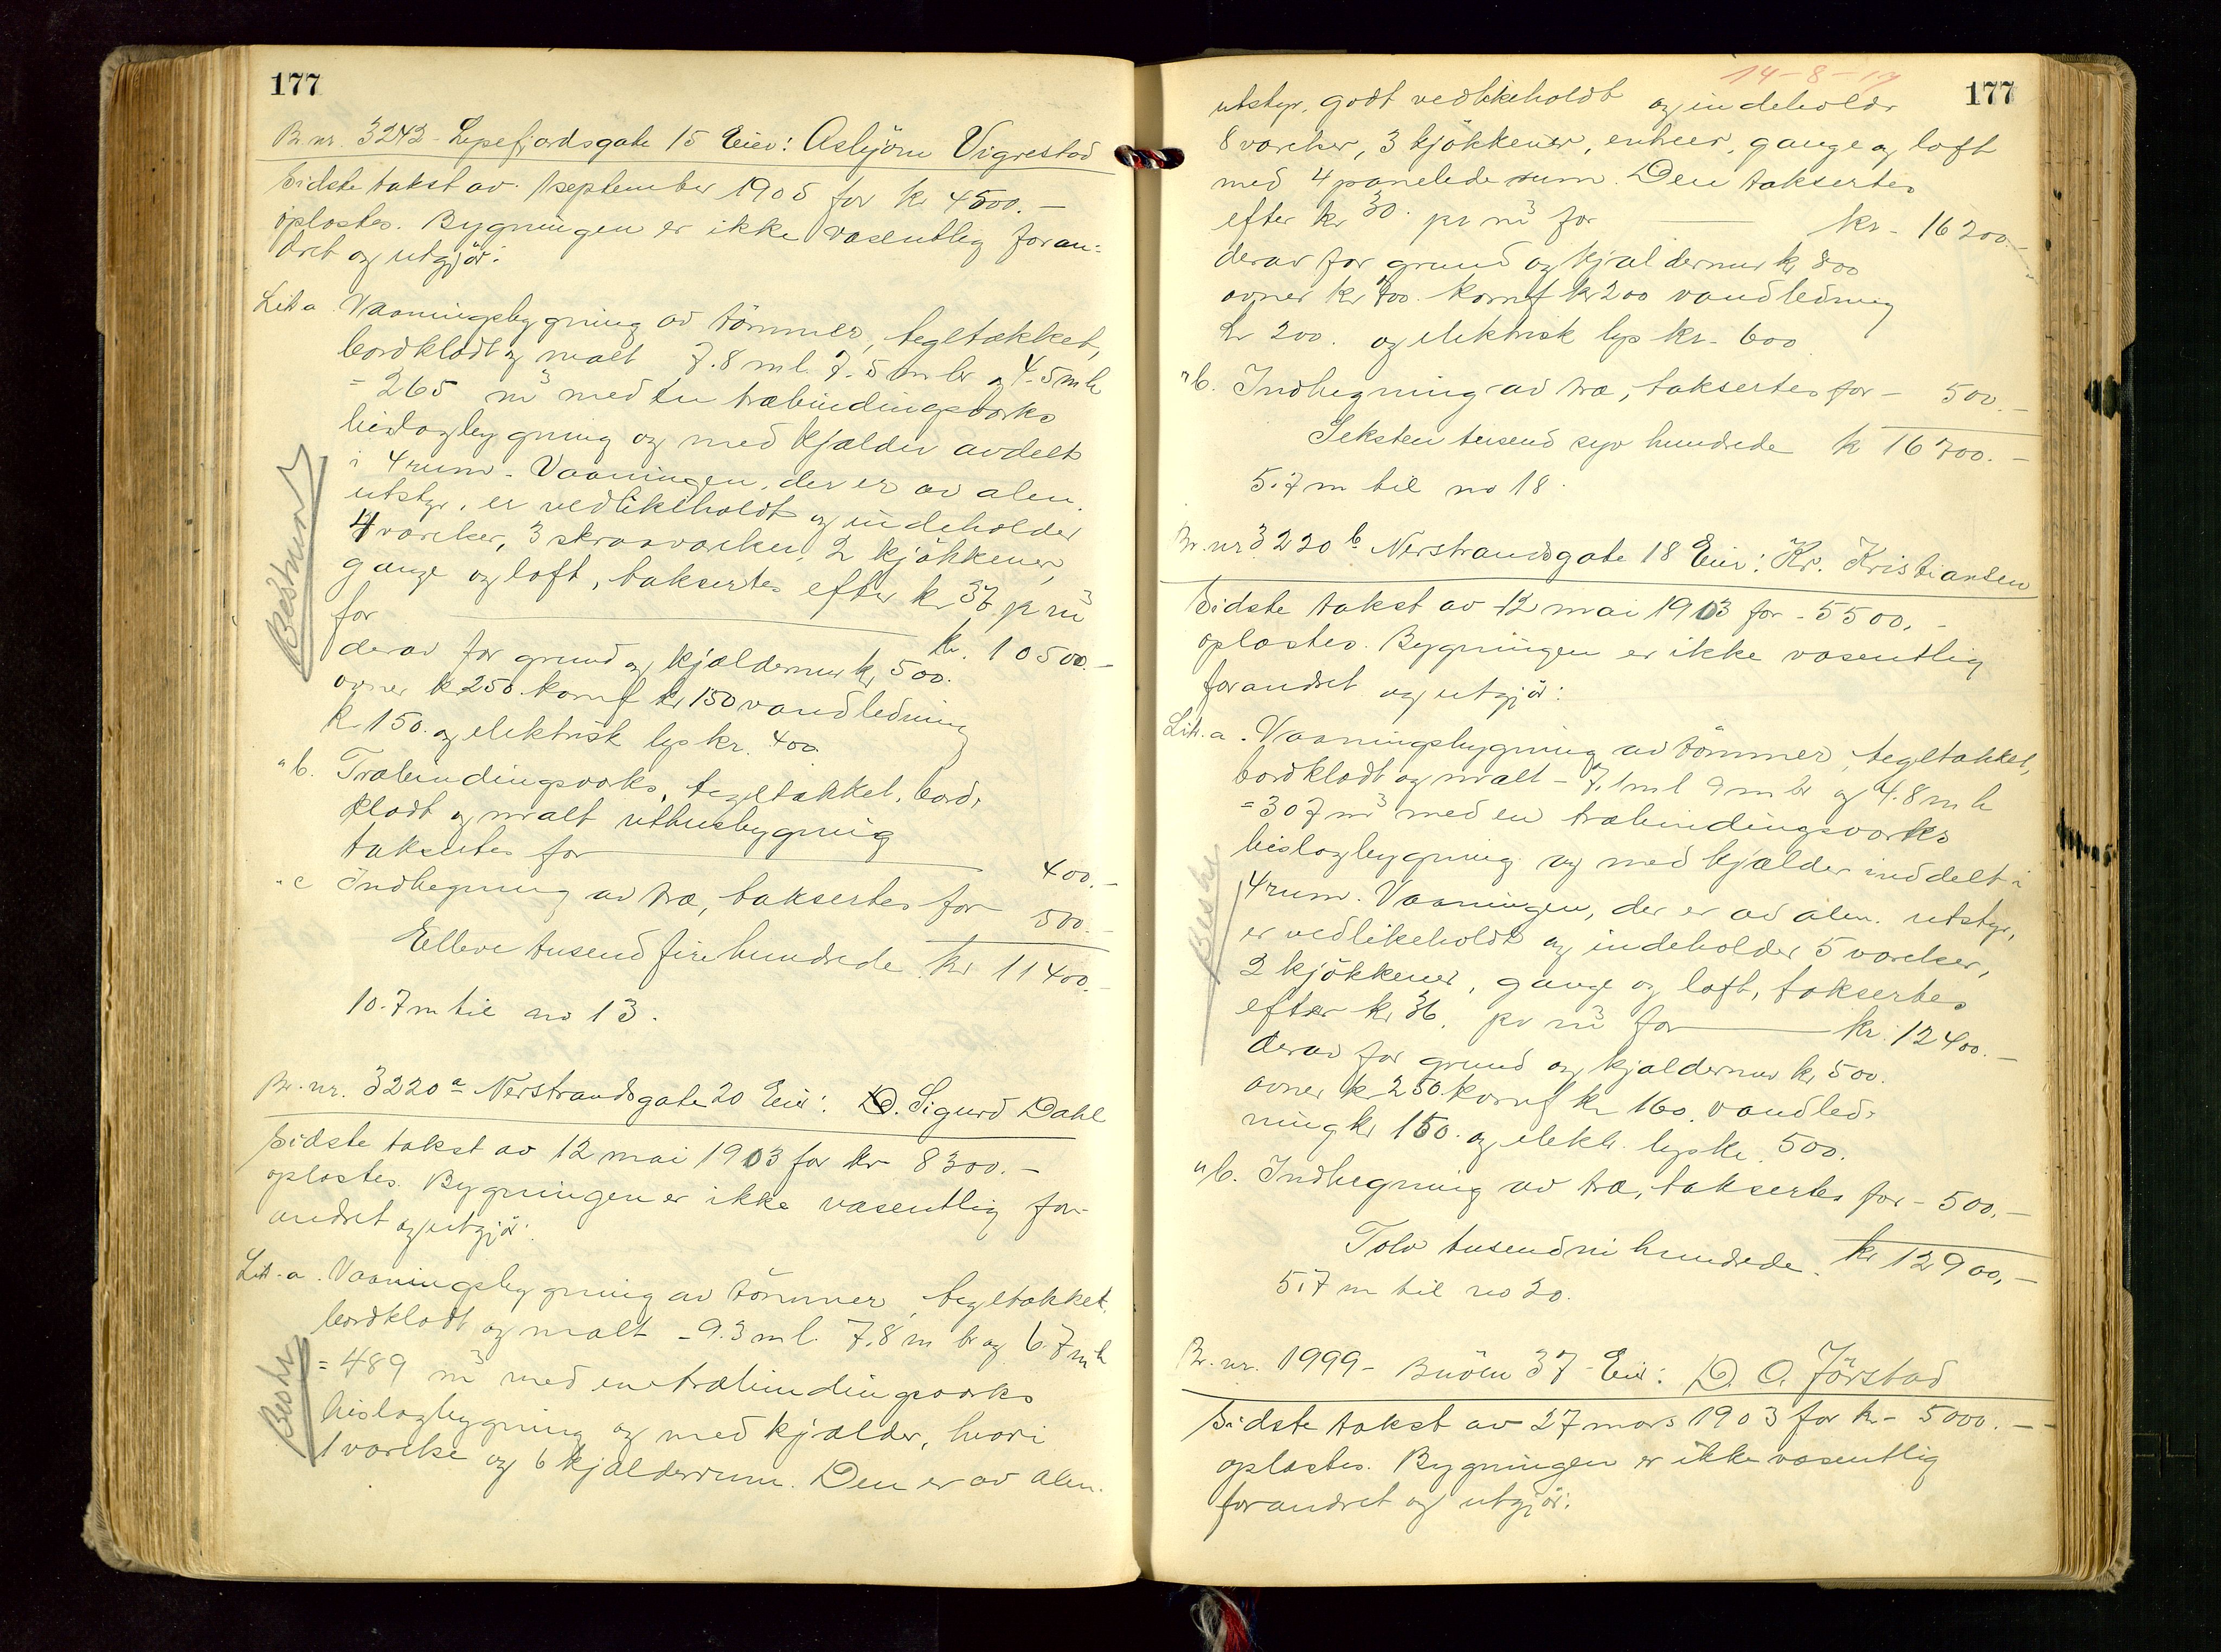 177
Br.nr. 3243 - Lysefjordsgate 15 Eier: Asbjörn Vigrestad
Sidste takst av 1 september 1905 for kr 4500.-
oplæstes. Bygningen er ikke væsentlig foran=
dret og utgjör:
Lit a Vaaningsbygning av tömmer, tegltækket,
bordklædt og malt 7.8 m l. 7.5 m br og 4.5 m h
= 265 m³ med en træbindingsværks
bislagbygning og med kjælder avdelt
i 4 rum. Vaaningen, der er av alm
utstyr, er vedlikeholdt og indeholder
4 værelser, 3 skraaværelser, 2 kjökkener,
gange og loft, taksertes efter kr 36. pr m³
for kr. 10500.-
derav for grund og kjældermur kr 500.
ovner kr 250. komf kr 150 vandledning
kr 150. og elektrisk lys kr. 400.
" b. Træbindingsværks, tegltækket, bord-
klædt og malt uthusbygning
taksertes for 400.-
" c Indhegning av træ, taksertes for 500.-
Elleve tusend fire hundrede kr 11400.-
10.7 m til no 13.
Bestrand
Br.nr. 3220 a Nerstrandsgate 20 Eier: D. Sigurd Dahl
Sidste takst av 12 mai 1903 for kr 8300.-
oplæstes. Bygningen er ikke væsentlig for-
andret og utgjör:
Lit. a. Vaaningsbygning av tömmer, tegltækket,
bordklædt og malt - 9.3 m l. 7.8 m br og 6.7 m h
= 489 m³ med en træbindingsværks
bislagbygning og med kjælder, hvori
1 værelse og 6 kjælderrum. Den er av alm.
14-8-17
177
utstyr, godt vedlikeholdt og indeholder
8 værelser, 3 kjökkener, entreer, gange og loft
med 4 panelede rum. Den taksertes
efter kr 30. pr m³ for kr - 16200.-
derav for grund og kjældermur kr 800
ovner kr 400. komf kr 200 vandledning
kr 200. og elektrisk lys kr. 600
" b. Indhegning av træ, taksertes for - 500.-
Seksten tusend syv hundrede kr 16700.-
5.7 m til no 18.
Br. nr 3220 b Nerstrandsgate 18 Eier: Kr. Kristiansen
Sidste takst av 12 mai 1903 for - 5500.-
oplæstes. Bygningen er ikke væsentlig
forandret og utgjör:
Lit. a. Vaaningsbygning av tömmer, tegltækket,
bordklædt og malt - 7.1 m l 9 m br og 4.8 m h
= 307 m³ med en træbindingsværks
bislagbygning og med kjælder inddelt i
4 rum. Vaaningen, der er av alm. utstyr,
er vedlikeholdt og indeholder 5 værelser,
2 kjökkener, gange og loft, taksertes
efter kr 36. pr m³ for kr. 12400.-
derav for grund og kjældermur kr 500.
ovner kr 250. komf kr 160. vandled-
ning kr 150. og elektr. lys kr. 500.
" b. Indhegning av træ, taksertes for - 500.-
Tolv tusend ni hundrede. kr 12900.-
5.7 m til no 20.
Br. nr. 1999 - Buöen 37 - Eier: D. O. Jörstad
Sidste takst av 27 mars 1903 for kr - 5000.-
oplæstes. Bygningen er ikke væsentlig
forandret og utgjör: